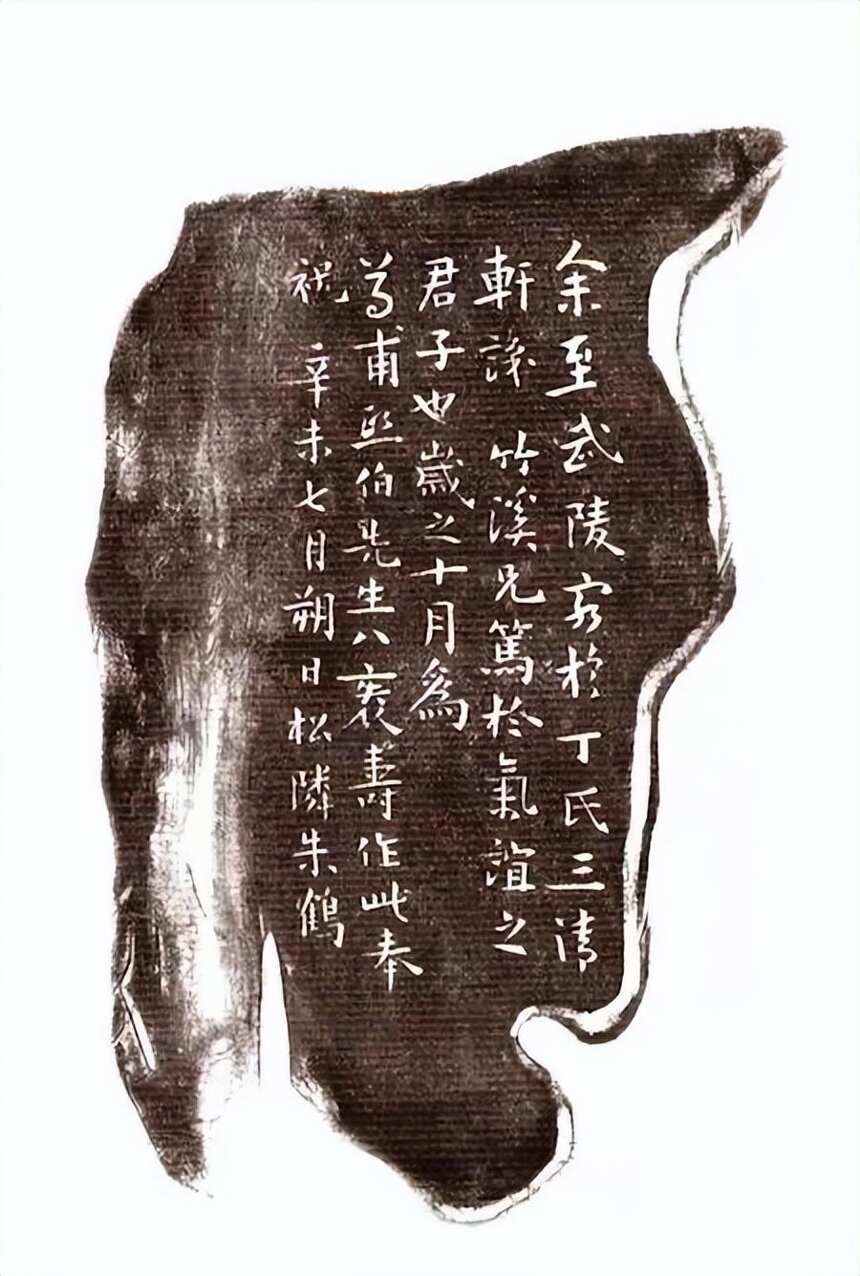 余至武陵客於丁氏三清
軒識 竹溪兄篤於氣誼之
君子也歲之十月爲
尊甫熙伯先生八袠壽作此奉
祝 辛未七月朔日松隣朱鶴